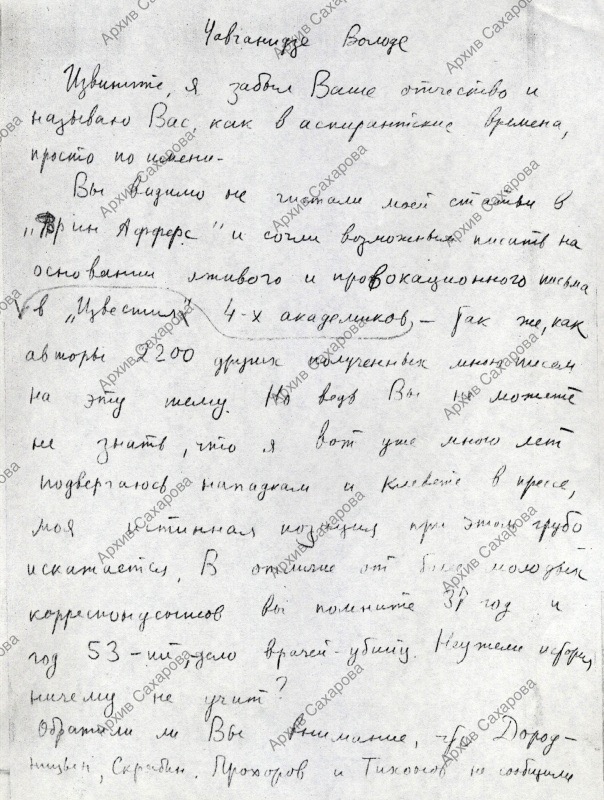 Чавчанидзе Володе
Извините, я забыл Ваше отчество и
называю Вас, как в аспирантские времена,
просто по имени.
Вы видимо не читали моей статьи в
„Форин Афферс" и сочли возможным писать на
основании лживого и провокационного письма
в „Известия" 4-х академиков, – Так же, как
авторы 2200 других полученных мною писем
на эту тему. Но ведь Вы не можете
не знать, что я вот уже много лет
подвергаюсь нападкам и клевете в прессе,
моя истинная позиция при этом грубо
искажается. В отличие от более молодых
корреспондентов вы помните 37 год и
год 53-ий, дело врачей-убийц. Неужели история
ничему не учит?
Обратили ли Вы внимание, что Дород-
ницын, Скрябин, Прохоров и Тихонов не сообщили
Архив Сахарова